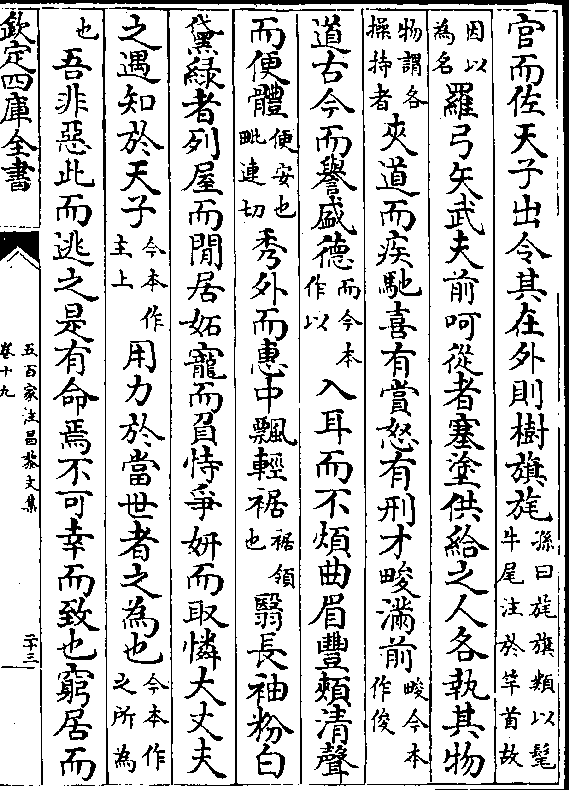 官而佐天子出令其在外則樹旗旄孫曰旄旗類以髦牛尾注於竿首故
因以為名羅弓矢武夫前呵從者塞塗供給之人各執其物
物謂各操持者夾道而疾馳喜有賞怒有刑才畯滿前畯今本作俊
道古今而譽盛德而今本作以入耳而不煩曲眉豐頰清聲
而便體便安也毗連切秀外而惠中飄輕裾裾領也翳長袖粉白
黛綠者列屋而閒居妬寵而負恃爭妍而取憐大丈夫
之遇知於天子今本作主上用力於當世者之為也今本作之所為
也吾非惡此而逃之是有命焉不可幸而致也窮居而
欽定四庫全書
五百家注昌黎文集
卷十九
二十三